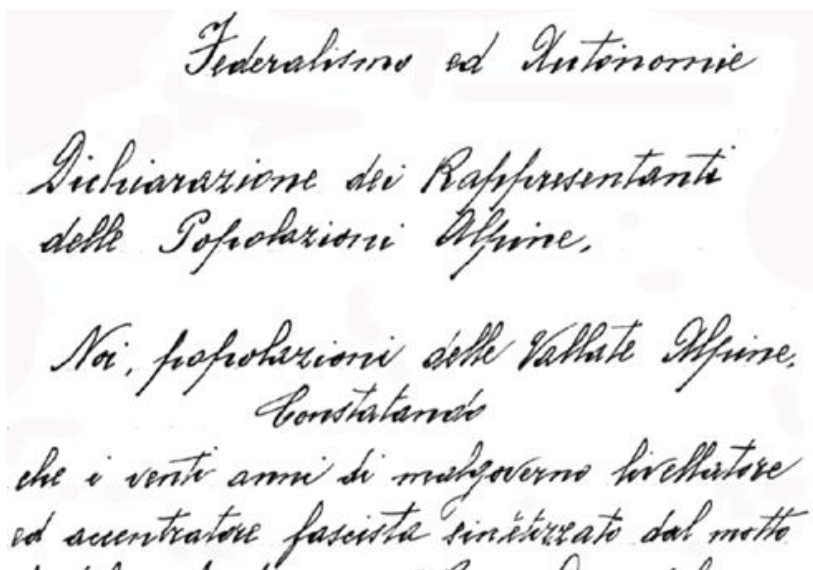 Federalismo ed Autonomie
Dichiarazione dei Rappresentanti
delle Popolazioni Alpine.
Noi, popolazioni delle Vallate Alpine.
Constatando
che i venti anni di malgoverno livellatore
ed accentratore fascista sintetizzato dal motto